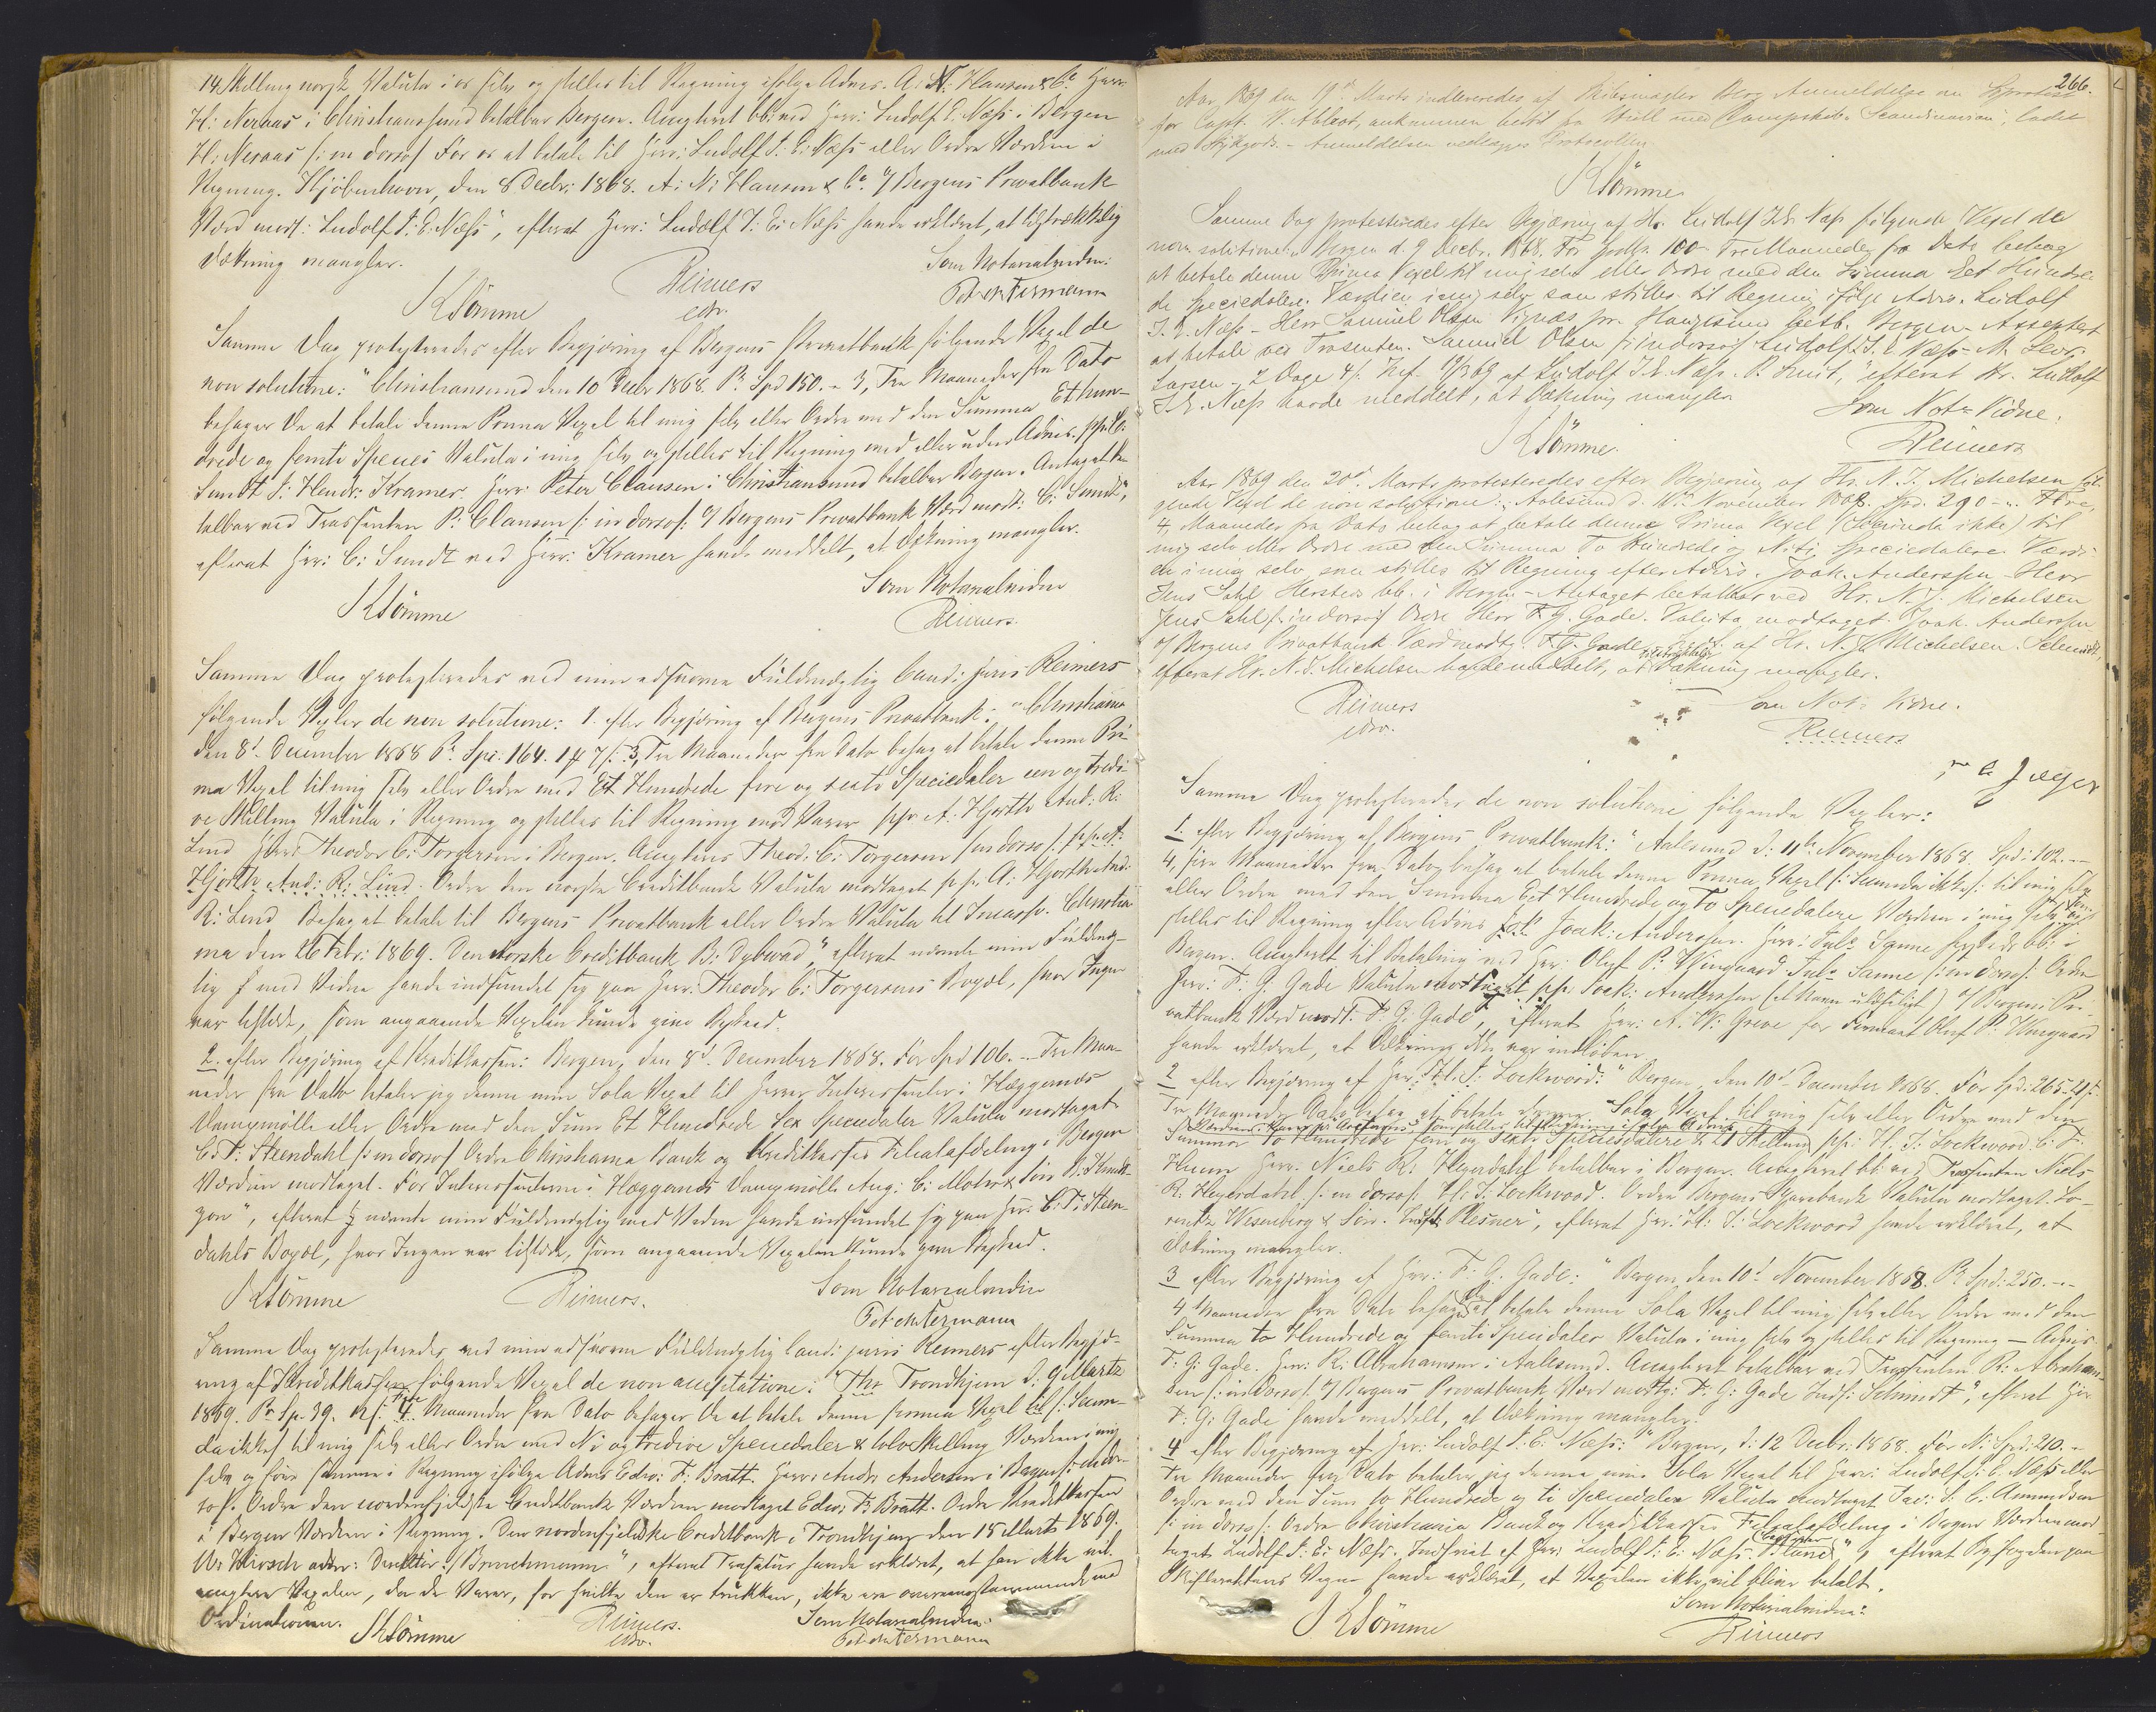 14 Skilling norsk Valuta i os selv og stilles til Regning ifølge Advis. A. N. Hansen & Co. Herr
H: Neraas i Christianssund betalbar Bergen. Accepteret bb. med Herr: Ludolf E. Næss i Bergen
H: Neraas /: in dorso/ For os at betale til Herr: Ludolf J: E: Næss eller Ordre Værdien i
Regning. Kjöbenhavn, den 8 Decbr: 1868. A: N: Hansen & Co. o/ Bergens Privatbank
Værd modt: Ludolf J: E. Næss", efterat Herr: Ludolf J: E: Næss havde erklæret, at tilstrækkelig
Dækning mangler.
Som Notarialvidne:
KStömme Reimers
edv. Petersen
Samme Dag protesteredes efter Begjæring af Bergens Privatbank følgende Vexel de
non solutione: "Christiansund den 10 Decbr 1868. Pr. Spd 150. - 3, Tre Maaneder fra Dato
behager De at betale denne Prima Vexel til mig selv eller Ordre med den Summa Et hun-
drede og femti Species Valuta i mig selv og stilles til Regning med eller uden Advis. ppa C.
Sundt J: Hendr: Kramer. Herr: Peter Clausen i Christiansund betalbar Bergen. Antaget be-
talbar ved Trassenten P: Clausen /: in dorso/: o/ Bergens Privatbank Værd modt: C: Sundt",
efterat Herr: C: Sundt ved Herr: Kramer havde meddelt, at Dækning mangler.
Som Notarialvidne
KStömme Reimers
Samme Dag protesteredes ved min edsvorne Fuldmægtig Cand: juris Reimers
følgende Vexler de non solutione: 1. efter Begjæring af Bergens Privatbank: "Christiania
den 8d. December 1868 Pr. Spd. 164. 1 # 7 /: 3, Tre Maaneder fra Dato behag at betale denne Pri-
ma Vexel til mig selv eller Ordre med Et Hundrede fire og sexti Speciedaler een og tredi-
ve Skilling Valuta i Regning og stilles til Regning mod Varer pp. A. Hjorth And: R:
Lind Herr: Theodor C: Torgersen i Bergen. Accepteres Theod: C: Torgersen /in dorso/: pp. A:
Hjorth And: R: Lind. Ordre den norske Creditbank Valuta modtaget pp. A: Hjorth And:
R: Lind Behag at betale til Bergens Privatbank eller Ordre Valuta til Incasso. Christia-
nia den 26 Febr: 1869. Den norske Creditbank B: Dybwad", efterat nævnte min Fuldmæg-
tig med Vidne havde indfundet sig paa Herr: Theodor C: Torgersens Bopæl, hvor Ingen
var tilstede, som angaaende Vexelen kunde give Besked.
2. efter Begjæring af Kreditkassen: Bergen, den 8d. December 1868. For Spd 106. - Tre Maa-
neder fra Dato betaler jeg denne min Sola Vexel til Herrer Interessenter i Hæggernæs
Dampmølle eller Ordre med den Sum Et Hundrede Sex Speciedaler Valuta modtaget
C: F: Steendahl /: in dorso/ Ordre Christiania Bank og Kreditkasses Filialafdeling i Bergen
Værdien modtaget. For Interessenterne i Hæggernæs Dampmølle Aug: C: Mohr & Søn P: Knudt-
zon", efterat nævnte min Fuldmægtig med Vidne havde indfundet sig paa Herr: C: F: Steen-
dahls Bopæl, hvor Ingen var tilstede, som angaaende Vexelen kunde give Besked.
Som Notarialvidne
KStömme Reimers.
Samme Dag protesteredes ved min edsvorne Fuldmægtig Cand: juris Reimers efter Begjæ-
ring af Kreditkassen følgende Vexel de non acceptatione: Trondhjem d. Marts
1869. Pr. Sp. 39. 12/: Maaneder fra Dato behager De at betale denne prima Vexel /: Secun-
da ikke/ til mig selv eller Ordre med Ni og tredive Speciedaler & tolv Skilling Værdien i mig
selv og føres samme i Regning ifølge Advis Edw: F: Bratt. Herr: Andr: Andersen i Bergen /: in dor-
so/: Ordre den nordenfjeldske Creditbank Værdien modtaget Edw: F: Bratt. Ordre Kreditkassen
i Bergen Værdien i Regning. Den nordenfjeldske Creditbank i Trondhjem den 15 Marts 1869.
W: Hirsch adm: Direktør /Brinchmann", efterat Trassatus havde erklæret, at han ikke vil
acceptere Vexelen, da de Varer, for hvilke den er trukken, ikke ere overensstemmende med
Ordinationen. Som Notarialvidne:
KStömme Reimers.
edv.
266.
Aar 1869 den 19d. Marts indleveredes af Skibsmægler Berg Anmeldelse om Søprotest
for Capt. V. Ablert, ankommen hertil fra Hull med Dampskib. Scandinavian, ladet
med Stykgods. - Anmeldelsen vedlægges Protocollen.
KStömme
Samme Dag protesteredes efter Begjæring af Hr. Ludolf J. E. Næss følgende Vexel de
non solutione: Bergen d. 9 Decbr. 1868. For Spd. 100 Tre Maaneder fra Dato behag
at betale denne Prima Vexel til mig selv eller Ordre med den Summa Eet Hundre-
de Speciedaler. Værdien i mig selv som stilles til Regning ifølge Advis. Ludolf
J. E. Næss - Herr Samuel Olsen Vignæs pr. Haugesund betb. Bergen - Accepteret
at betale ved Trasenten. Samuel Olsen /: indorso/ Ludolf J. E. Næss -
Larsen - 2 Dage 4/. 19/3 69 af Ludolf J. E. Næss. , "efterat Hr. Ludolf
J. E. Næss havde meddelt, at Dækning mangler.
Som Not: Vidne.
KStömme. Reimers
Aar 1869 den 20d. Marts protesteredes efter Begjæring af Hr. N. J. Michelsen føl-
gende Vexel de non solutione: Aalesund d. November 1868. Spd. 290 - Fire,
4, Maaneder fra Dato behag at betale denne Prima Vexel (Secunda ikke) til
mig selv eller Ordre med den Summa To Hundrede og Niti Speciedaler. Værdi-
en i mig selv, som stilles til Regning efter Advis. Joak. Anderssen - Herr
Jens Sahl Hersted bb. i Bergen - Antaget betalbar ved Hr. N. J. Michelsen
Jens Sahl /: in dorso/ Ordre Herr F. G. Gade. Valuta modtaget. Joak. Anderssen
o/ Bergens Privatbank Værd modt. F. G. Gade, af Hr. N. J. Michelsen. Schmidt,
efterat Hr. N. J. Michelsen havde meddelt, at tilstrækkelig Dækning mangler.
Som Not: Vidne.
Reimers
edv. Reimers
Jæger
Samme Dag protesteredes de non solutione følgende Vexler:
1. efter Begjæring af Bergens Privatbank: "Aalesund d: 11te November 1868. Spd: 102. -
4, fire Maaneder fra Dato behag at betale denne Prima Vexel /: Secunda ikke/: til mig selv
eller Ordre med den Summa Eet Hundrede og To Speciedaler Værdien i mig selv som
stilles til Regning efter Advis Joak: Anderssen. Herr: Sanne bb: i
Bergen. Accepteret til Betaling ved Herr: Oluf P: Wiingaard Sanne /: in dorso/: Ordre
Herr: F: G. Gade Valuta modtaget pp: Joak: Anderssen (et Navn ulæseligt) o/ Bergens Pri-
vatbank Værd modt. F: G: Gade", efterat Herr: A: W: Greve for Formand Oluf P: Wiingaard
havde erklæret, at Dækning ikke var indløben.
2 efter Begjæring af Herr: H: J: Lockwood: "Bergen, den 10d. December 1868. For Spd: 265-21/:
Tre Maaneder Dato behag at betale denne Sola Vexel til mig selv eller Ordre med den
Summa To Hundrede fem og Sexti Speciesdalere & 21 Skilling pp: H. J. Lockwood C: F:
Herr. Niels R: Heyerdahl betalbar i Bergen. Accepteret bb: ved Trassenten Niels
R: Heyerdahl /: in dorso/: H: J. Lockwood. Ordre Bergens Sparebank Valuta modtaget Lo-
rentz Wesenberg & Søn. Plesner", efterat Herr: H: J: Lockwood havde erklæret, at
Dækning mangler.
3 efter Begjæring af Herr: F: G. Gade: "Bergen, den 10d. November 1868. Pr. Spd: 250. --
4 Maaneder fra Dato behag De at betale denne Sola Vexel til mig selv eller Ordre med den
Summa to Hundrede og femti Speciedaler Valuta i mig selv og stilles til Regning - Advis
F: G: Gade. Herr: R: Abrahamsen i Aalesund. Accepteret betalbar ved Trassenten R: Abraham-
sen /: in dorso/. o/ Bergens Privatbank Værd modt: F: G: Gade Indf: Schmidt", efterat Herr
F: G: Gade havde meddelt, at Dækning mangler.
4 efter Begjæring af Herr: Ludolf J: E: Næss: "Bergen, d: 12 Decbr: 1868. For No: Spd: 210. -
Tre Maaneder fra Dato betaler jeg denne min Sola Vexel til Herr: Ludolf J: E. Næss eller
Ordre med den Sum to Hundrede og ti Speciedaler Valuta modtaget C: Amundsen
/: in dorso/: Ordre Christiania Bank og Kreditkasses Filialafdeling i Bergen Værdien mod-
taget Ludolf J: E: Næss. Indfriet af Herr: Ludolf J: E: Næss. ", efterat Byfogden paa
Skifterettens Vegne havde erklæret, at Vexelen ikke vil blive betalt.
Som Notarialvidne:
KStömme Reimers